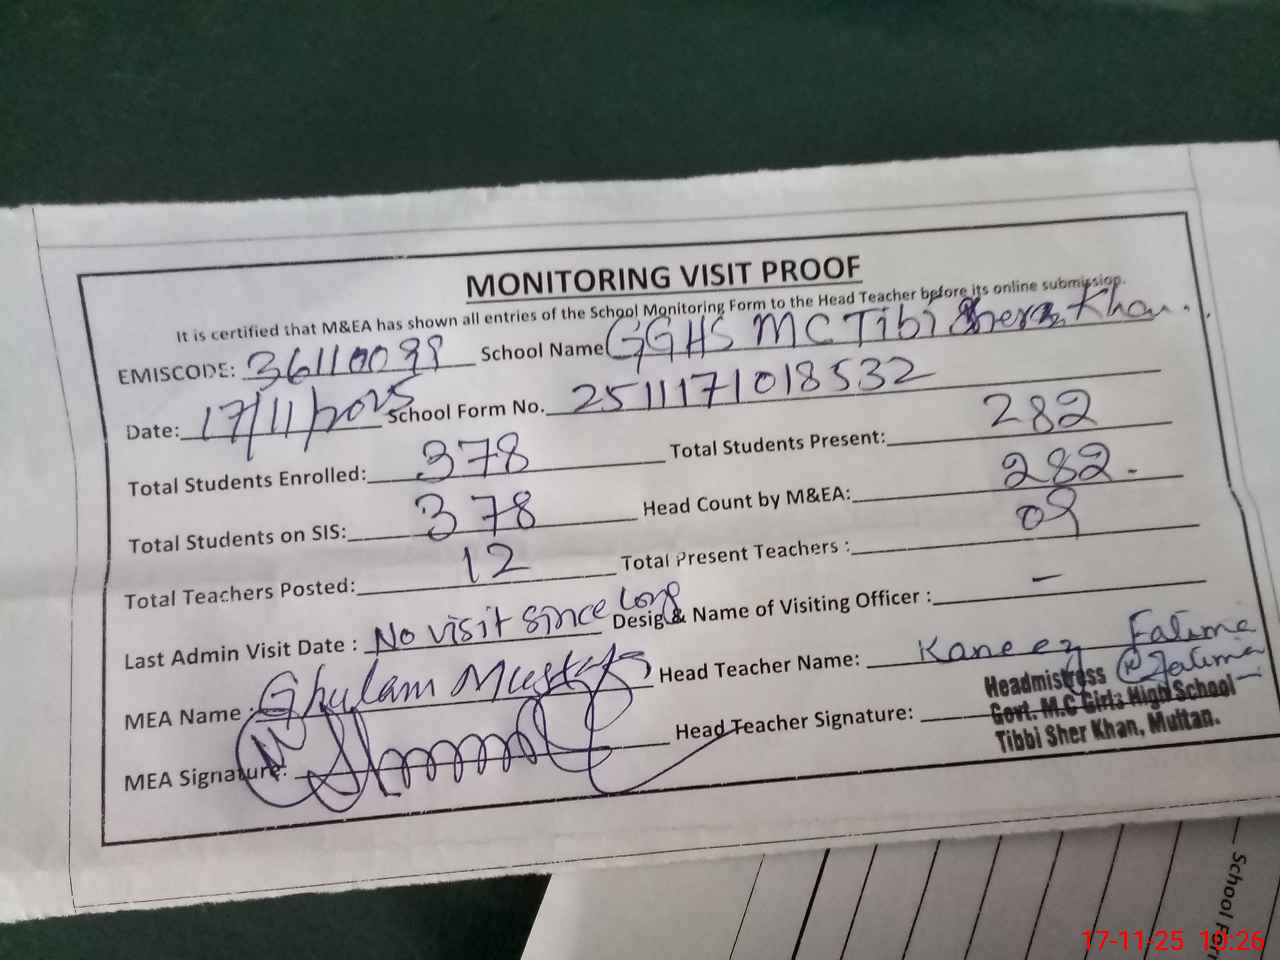 MONITORING VISIT PROOF
It is certified that M&EA has shown all entries of the School Monitoring Form to the Head Teacher before its online submission.
EMISCODE: 36110099 School Name GGHS MC Tibi Sher Khan.
Date: 17/11/2025 School Form No. 2511171018532
Total Students Enrolled: 378 Total Students Present: 282
Total Students on SIS: 378 Head Count by M&EA: 282.
Total Teachers Posted: 12 Total Present Teachers : 09
Last Admin Visit Date : No visit since long Desig & Name of Visiting Officer : –
MEA Name : Ghulam Mustafa Head Teacher Name: Kaneez Fatima
MEA Signature: Head Teacher Signature: Fatima
Headmistress
Govt. M.C Girls High School
Tibbi Sher Khan, Multan.
School For
17-11-25 10:26